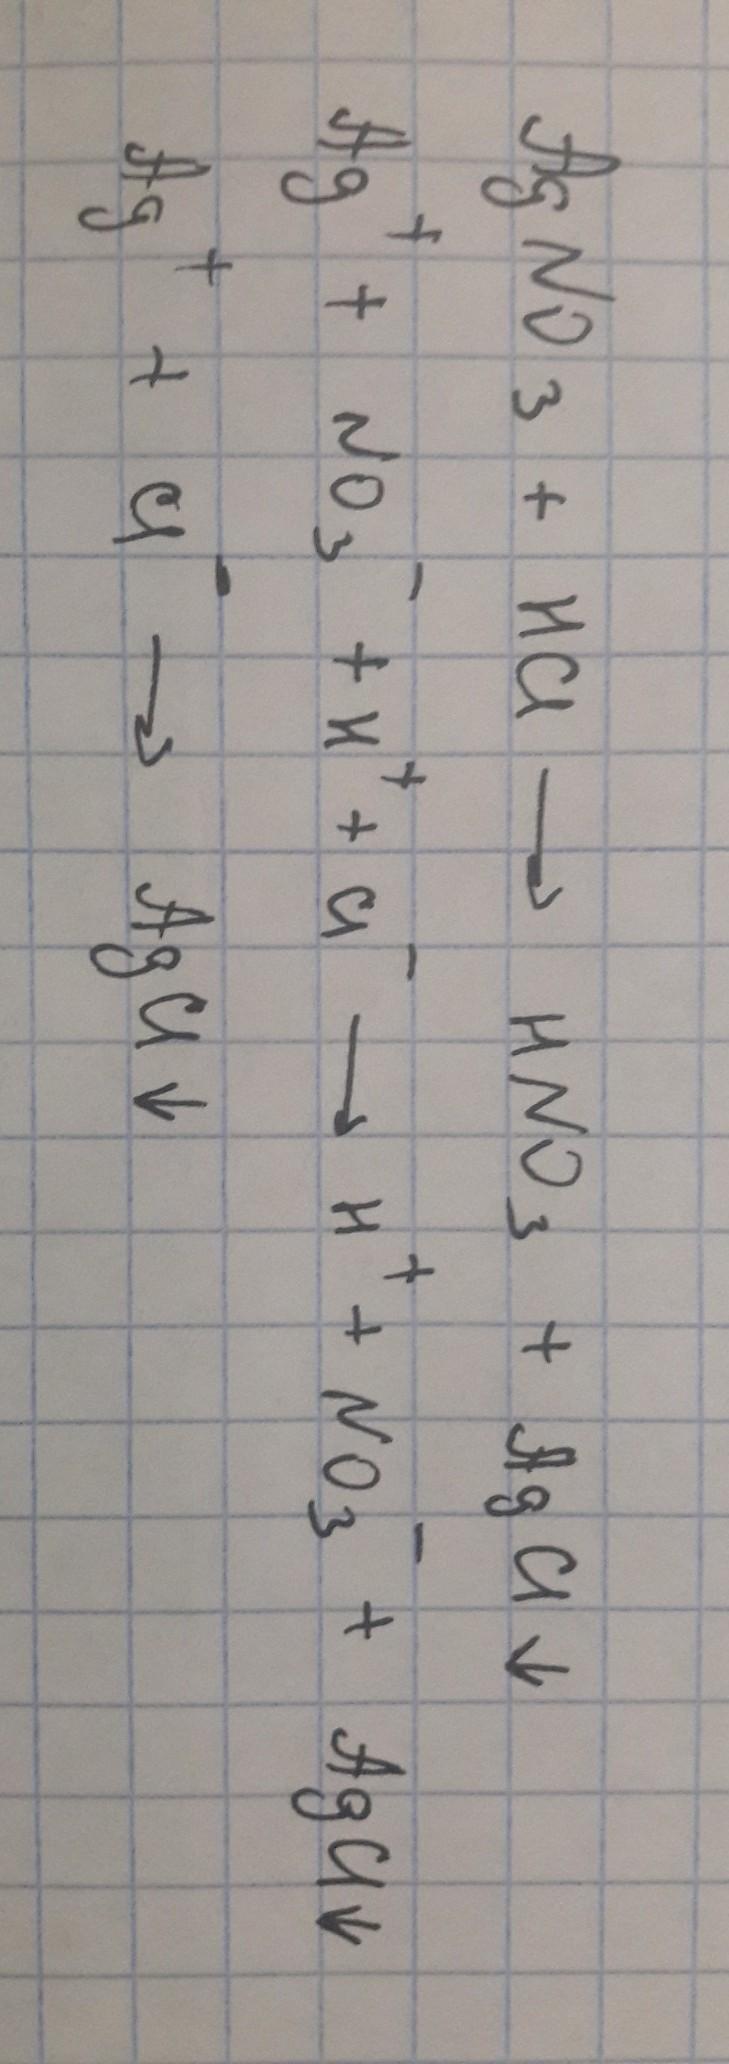 AgNO3 + HCl → HNO3 + AgCl↓
Ag⁺ + NO3⁻ + H⁺ + Cl⁻ → H⁺ + NO3⁻ + AgCl↓
Ag⁺ + Cl⁻ → AgCl↓